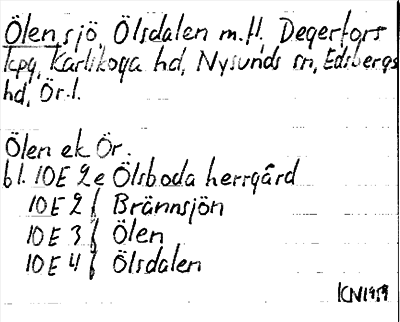 Ölen, sjö, Ölsdalen m.fl., Degerfors
kpg, Karlskoga hd, Nysunds sn, Edsbergs
hd, Ör. l.
Ölen ek Ör.
bl. 10E 2e Ölsboda herrgård
10E 2f Brännsjön
10E 3f Ölen
10E 4f Ölsdalen
KN1959